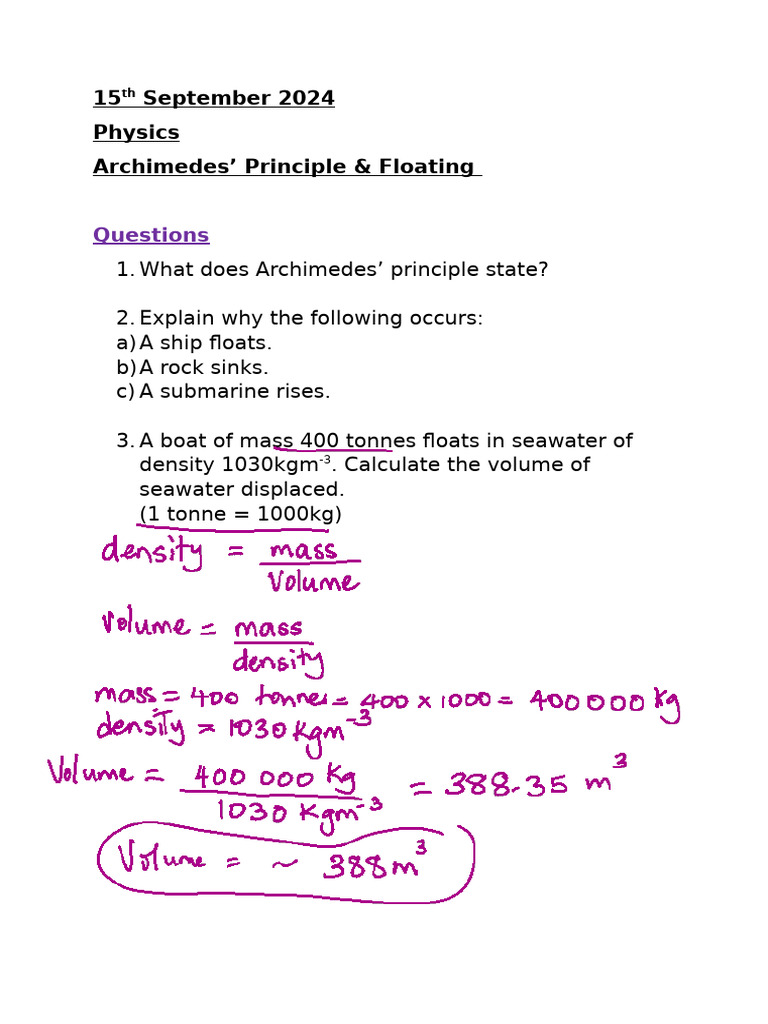 15th September 2024
Physics
Archimedes’ Principle & Floating
Questions
1. What does Archimedes’ principle state?
2. Explain why the following occurs:
a) A ship floats.
b) A rock sinks.
c) A submarine rises.
3. A boat of mass 400 tonnes floats in seawater of
density 1030kgm-3. Calculate the volume of
seawater displaced.
(1 tonne = 1000kg)
density = mass
Volume
Volume = mass
density
mass = 400 tonnes = 400 x 1000 = 400 000 kg
density = 1030 Kgm-3
Volume = 400 000 Kg = 388.35 m3
1030 Kgm-3
Volume = ~ 388m3